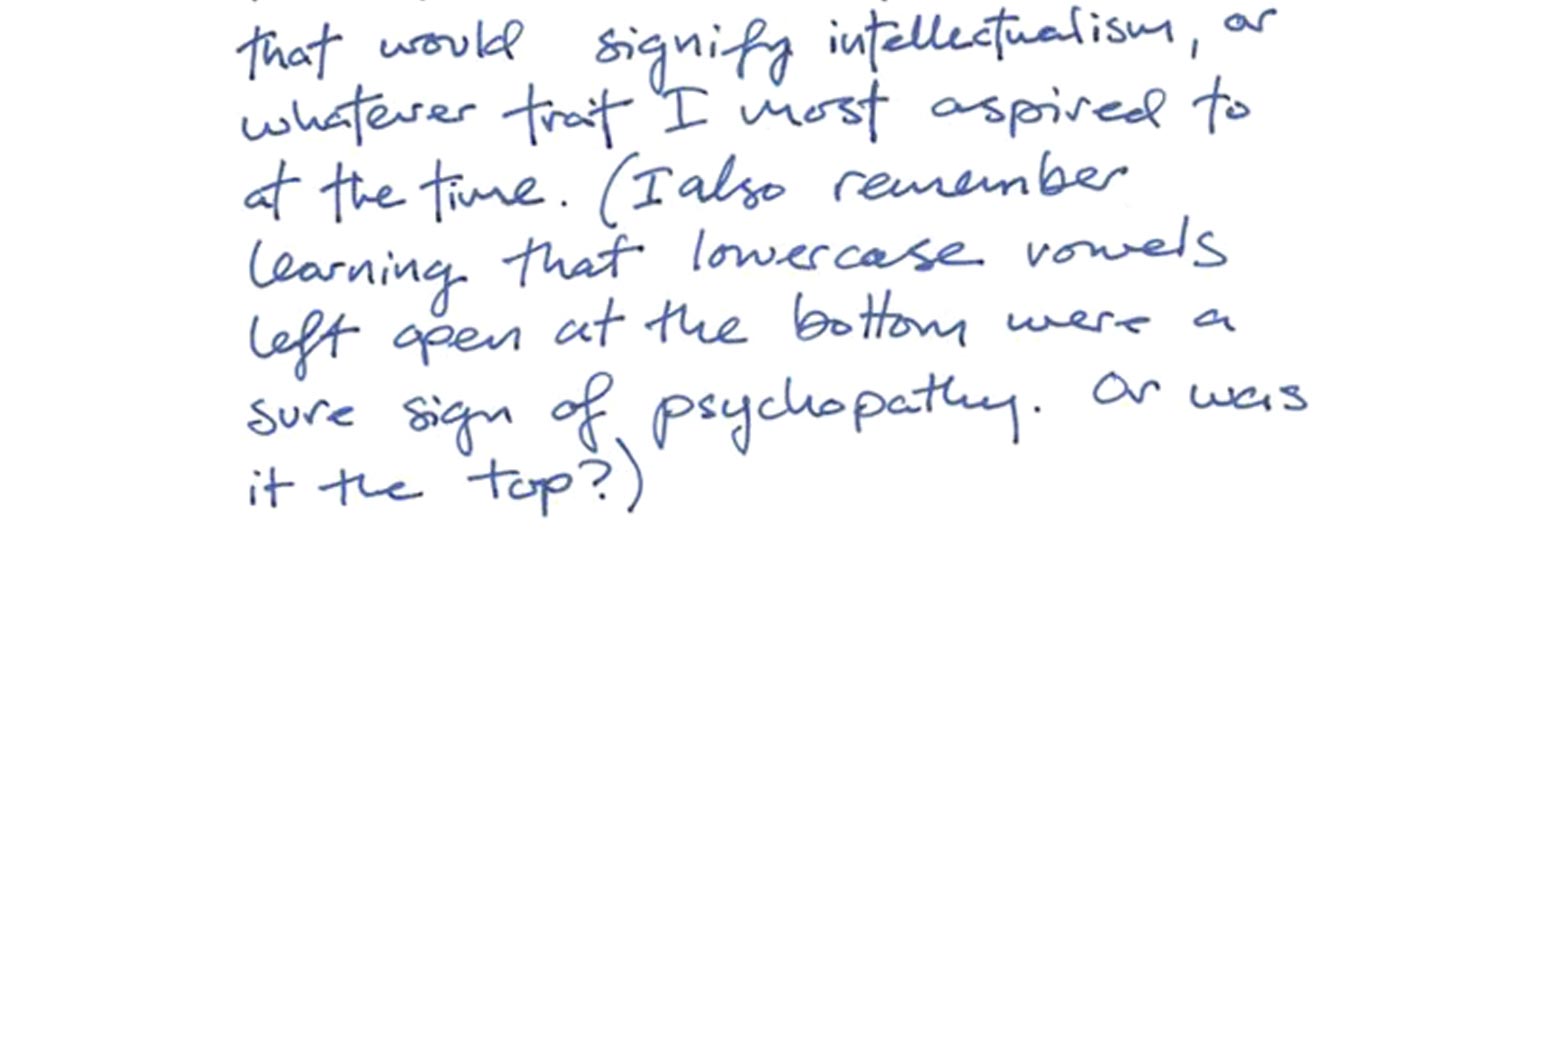 that would signify intellectualism, or
whatever trait I most aspired to
at the time. (I also remember
learning that lowercase vowels
left open at the bottom were a
sure sign of psychopathy. Or was
it the top?)